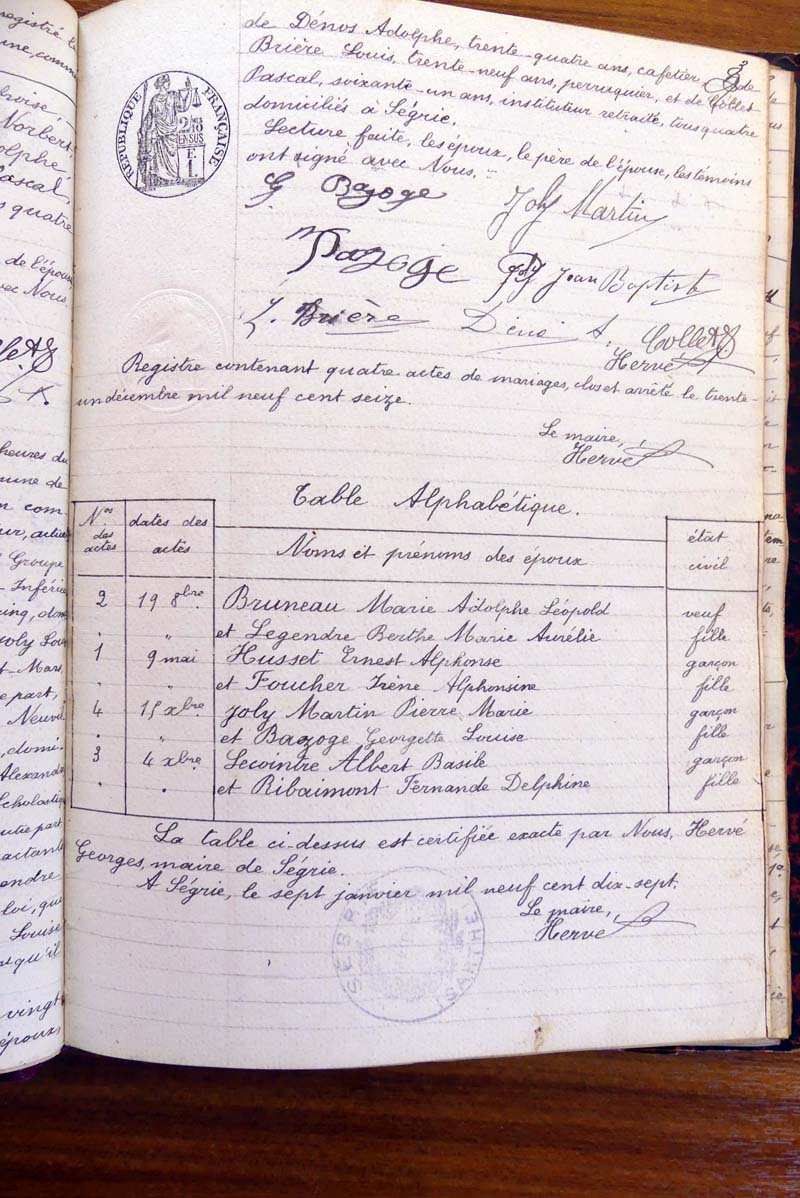 de Dénos Adolphe, trente-quatre ans, cafetier, de
Brière Louis, trente-neuf ans, perruquier, et de Collet
Pascal, soixante-un ans, instituteur retraité, tous quatre
domiciliés à Ségrie.
Lecture faite, les époux, le père de l'épouse, les témoins
ont signé avec Nous.
RÉPUBLIQUE FRANÇAISE
2/10 EN SUS
G. Bazoge
Joly Martin
Bazoge
Joly Jean Baptiste
L. Brière
Dénos A.
Collet
Hervé
Registre contenant quatre actes de mariages, clos et arrêté le trente-
un décembre mil neuf cent seize.
Le maire,
Hervé
Table Alphabétique.
Nos des actes
dates des actes
Noms et prénoms des époux
état civil
2 19 8bre Bruneau Marie Adolphe Léopold veuf
. " et Legendre Berthe Marie Aurélie fille
1 9 mai Husset Ernest Alphonse garçon
" " et Foucher Irène Alphonsine fille
4 15 xbre Joly Martin Pierre Marie garçon
" " et Bazoge Georgette Louise fille
3 4 xbre Lecointre Albert Basile garçon
" . et Ribaimont Fernande Delphine fille
La table ci-dessus est certifiée exacte par Nous, Hervé
Georges, maire de Ségrie.
A Ségrie, le sept janvier mil neuf cent dix-sept.
Le maire,
Hervé
(SARTHE)